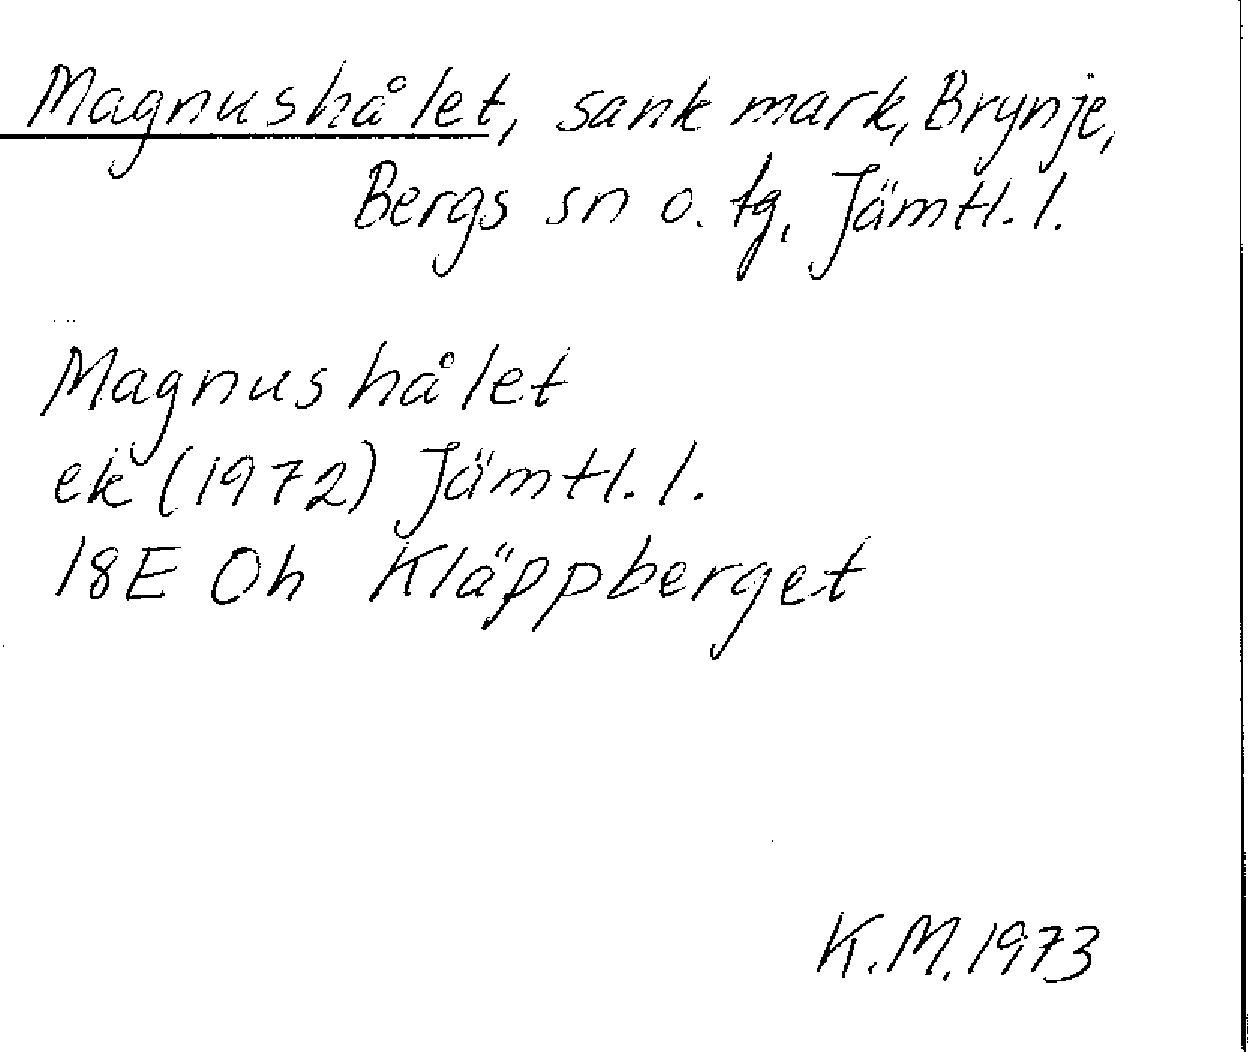 Magnushålet, sank mark, Brynje,
Bergs sn o. tg, Jämtl. l.
Magnushålet
ek (1972) Jämtl. l.
18E 0h Kläppberget
K.M. 1973